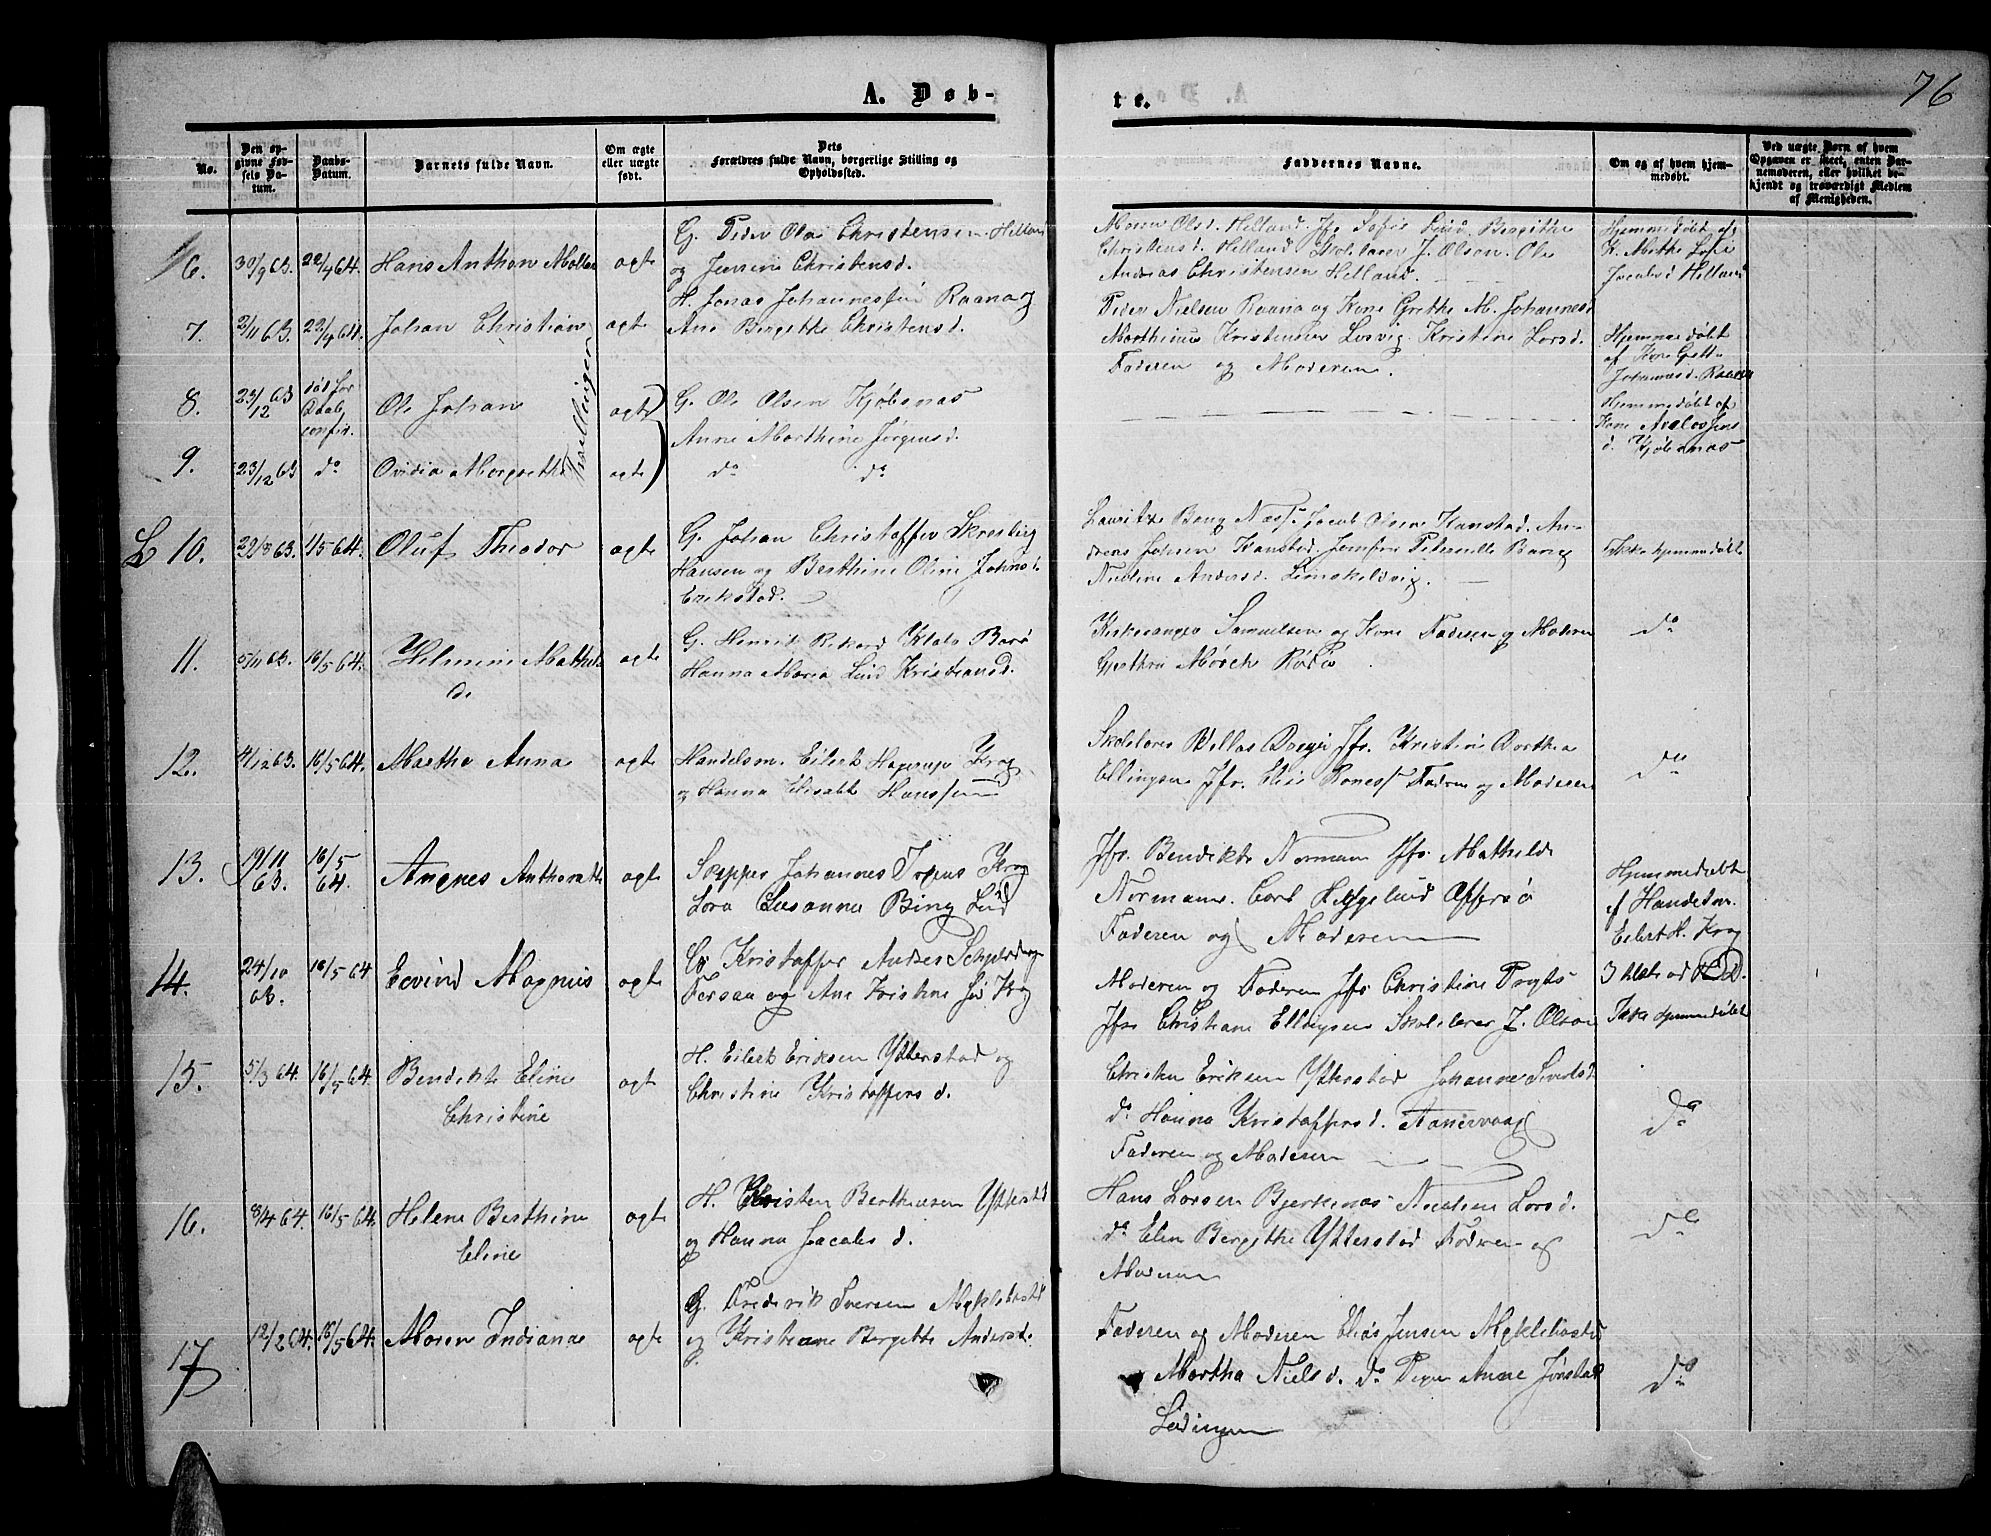 76
A. Døb-
te.
No.
Den op-
givne Fød-
sels Da-
tum.
Daabs-
Datum.
Barnets fulde Navn.
Om ægte
eller uægte
født.
Dets
Forældres fulde Navn, borgerlige Stilling og
Opholdssted.
Faddernes Navne.
Om og af hvem hjem-
medøbt.
Ved uægte Born af hvem
Opgaven er skeet, enten Bar-
nemoderen, eller hvilket be-
kjendt og troværdigt Medlem
af Menigheden.
6.
30/9 63.
Hans Anthon
ægte
G. Peder Ola Christensen Helland
og Jensine Christensd.
Maren Olsd. Helland. Jfr Sofie Lind Bergithe
Christensd. Helland Skolelærer J. Olsen. Ole
Andreas Christensen Helland.
Hjemmedøbt af
K. Mette Sofie
Jacobsd Helland
7.
2/11 63.
22/4 64.
Johan Christian
ægte
H. Jonas Johannessen Raana og
Ane Bergitte Christensd.
Peder Nielsen Raana og Kone Grethe M. Johannesd
Marthinus Kristensen Kristine Larsd.
Faderen og Moderen
Hjemmedøbt
af Kone
Johannesd. Raana
8.
23/12 63
død før
Daab
Ole Johan
Tvillinger
ægte
G. Ole Olsen Kjøbsnæs
Anne Marthine Jørgensd.
Hjemmedøbt af
Kone
d. Kjøbsnæs
9.
23/12 63
do
Ovidia Margrethe
ægte
do do
L 10.
29/8 63.
1/5 64.
Oluf Theodor
ægte
G. Johan Christoffer
Hansen og Berthine Oline Johnsd.
Erikstad.
Lauritz Bang Næss. Jacob Olsen Kanstad. An-
dreas Johnsen Kanstad. Jomfru Peternille Bang
Nicoline Andersd.
Ikke hjemmedøbt
11.
5/11 63.
16/5 64.
Helmine Mathil
de
ægte
G. Henrik Rikard Klæbo Barø
Hanna Maria Lind Kristiansd.
Kirkesanger Samuelsen og Kone Faderen og Moderen
Mørch Rødø
do
12.
4/12 63.
16/5 64.
Martha Anna
ægte
Handelsm. Eilert Hagerup Krog
og Hanna Elisabet Hanssen
Skolelærer Jfr. Kristine Dorthea
Ellingsen Jfr. Elise Faderen og Moderen
do
13.
19/11
63.
16/5
64.
Angnes
ægte
Skipper Johannes Krog
Lora Susanna Bing Lind
Jfr. Bendikte Normann Jfr. Mathilde
Normann. Carl Heggelund Offersø
Faderen og Moderen
Hjemmedøbt
af Handelsm.
Eilert H. Krog
14.
24/10
63.
16/5 64
Eevind Magnus
ægte
G. Kristoffer Andres
og Ane Kristine Krog
Moderen og Faderen Jfr Christine
Jfr Christiane Ellingsen Skolelærer J. Olsen
Ikke hjemmedøbt
15.
5/3 64.
16/5 64.
Bendikte Eline
Christine
ægte
H. Eilert Eriksen Ytterstad og
Christine Kristoffersd.
Christen Eriksen Ytterstad Johanne Sivertsd
do Hanna Kristoffersd.
Faderen og Moderen
do
16.
8/4 64.
16/5 64.
Helene Berthine
Eline
ægte
H. Kristen Berthiusen Ytterstad
og Hanna Jacobs d.
Hans Larsen Bjerkenæs Larsd.
do Elen Bergithe Ytterstad Faderen og
Moderen
do
17
12/2 64.
16/5 64.
Maren Indiana
ægte
G. Frederik Iversen Myklebostad
og Kristiane Bergitte Andersd.
Faderen og Moderen Elias Jensen Myklebostad
Martha Nielsd. do Pige Anne
Lødingen
do